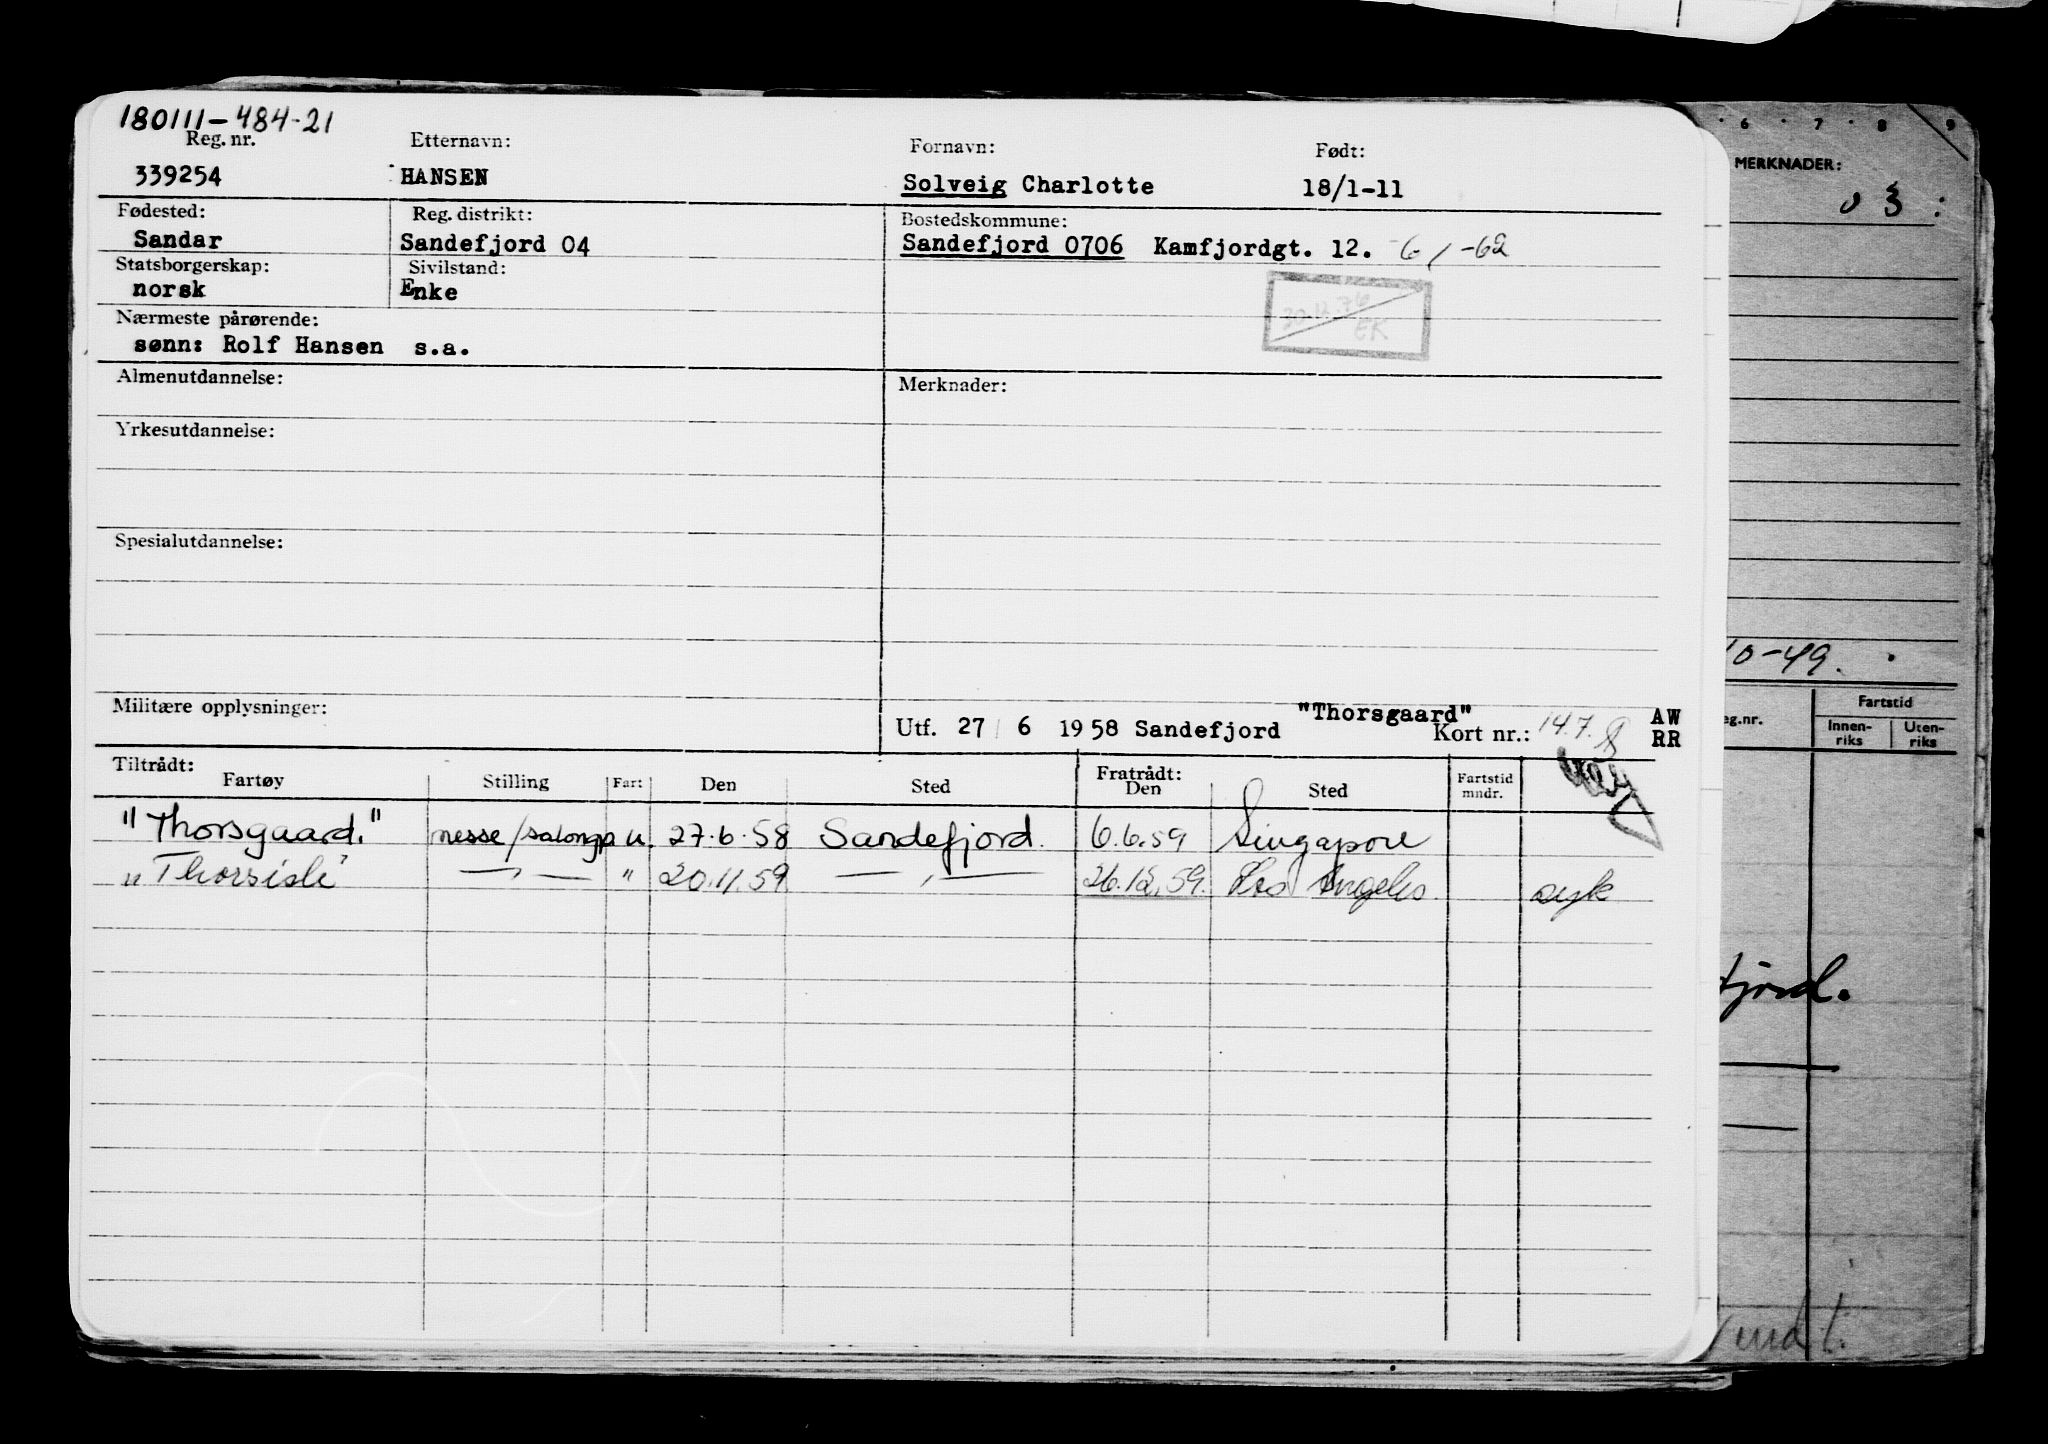 180111-484-21
Reg. nr. Etternavn: Fornavn: Født:
339254 HANSEN Solveig Charlotte 18/1-11
Fødested: Reg. distrikt: Bostedskommune:
Sandar Sandefjord 04 Sandefjord 0706 Kamfjordgt. 12. 6/ -62
Statsborgerskap: Sivilstand:
norsk Enke
EK
Nærmeste pårørende:
sønn: Rolf Hansen s.a.
Almenutdannelse: Merknader:
Yrkesutdannelse:
Spesialutdannelse:
Militære opplysninger:
Utf. 27/ 6 1958 Sandefjord "Thorsgaard" Kort nr.: 14.7. AW
RR
Tiltrådt: Fratrådt:
Fartøy Stilling Fart Den Sted Den Sted Fartstid mndr.
"Thorsgaard." messe/salongp u. 27.6.58 Sandefjord. 6.6.59 Singapore
"Thorsisle" — " — " 20.11.59 — " — 26.12.59. Los Angeles
6 7 8 9
MERKNADER:
03:
10-49.
eg.nr. Fartstid
Innen-
riks
Uten-
riks
fjord.